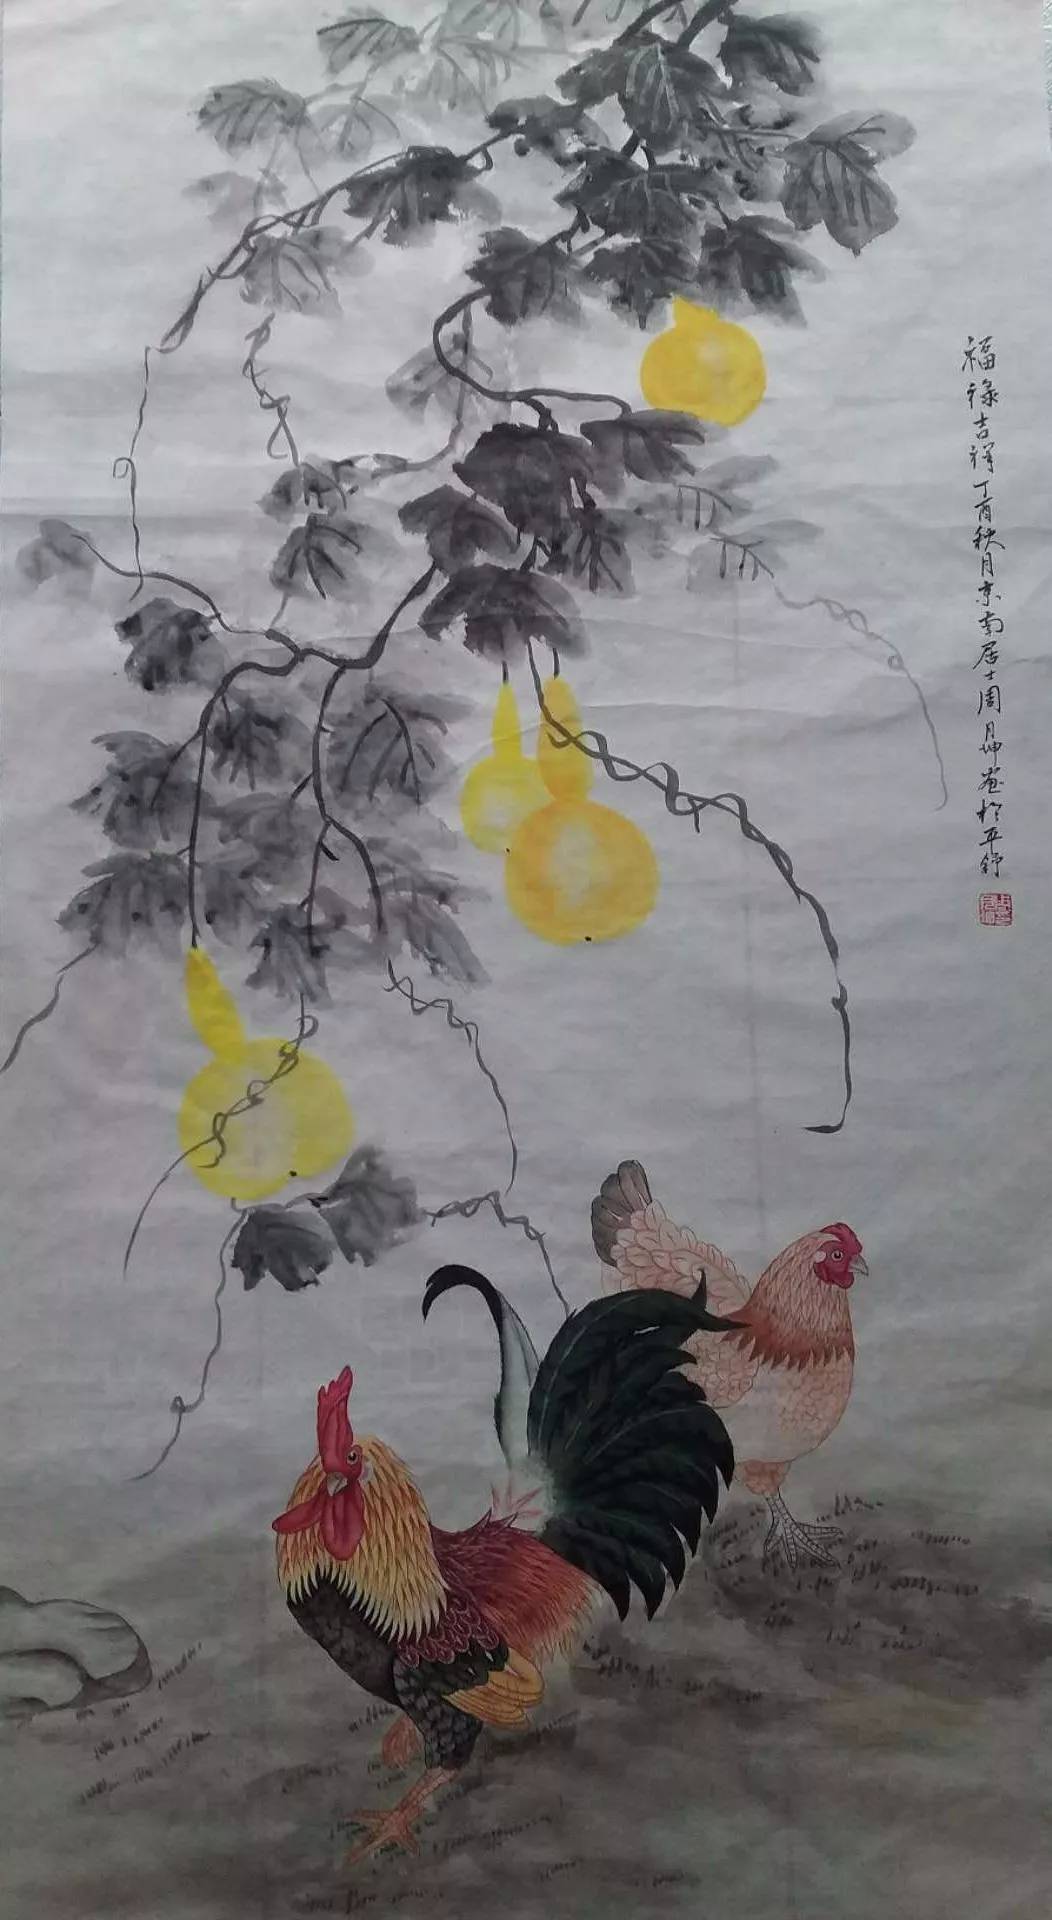 福禄吉祥丁酉秋月京南居士周月坤画於平舒